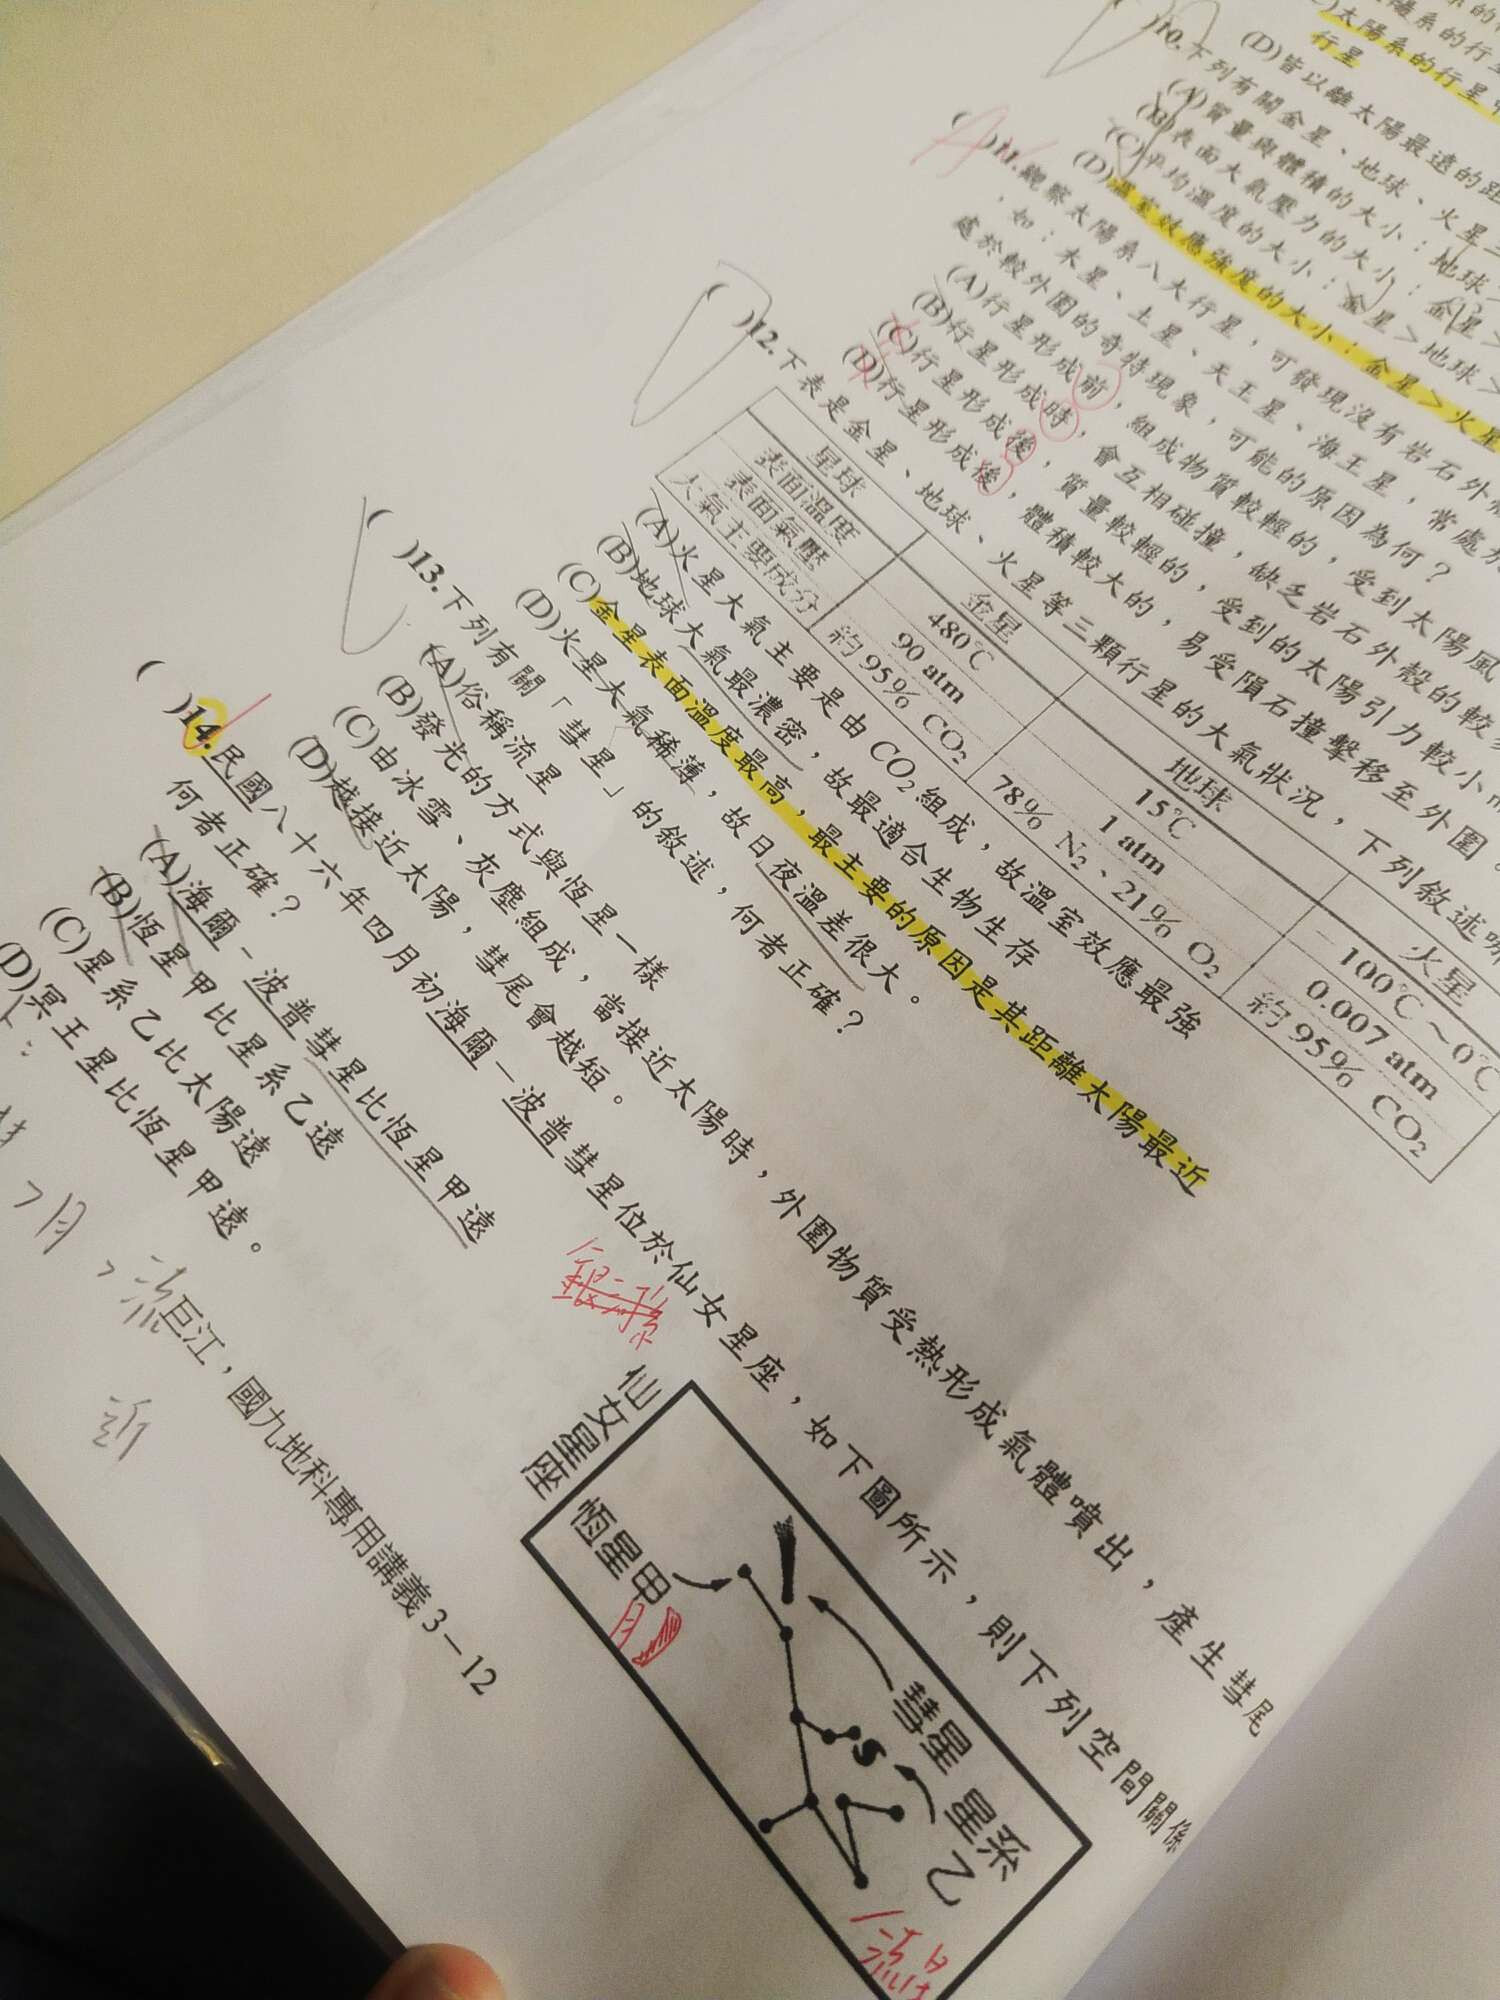 太陽系的行星
行星
(D)皆以離太陽最遠的
( )10.下列有關金星、地球、火星
(A)質量與體積的大小：地球
(B)表面大氣壓力的大小：金星>
(C)平均溫度的大小：金星>地球>
(D)溫室效應強度的大小：金星>火星
( )11.觀察太陽系八大行星，可發現沒有岩石外
，如：木星、土星、天王星、海王星，常處
處於較外圍的奇特現象，可能的原因為何？
(A)行星形成前，組成物質較輕的，受到太陽風
(B)行星形成時，會互相碰撞，缺乏岩石外殼的較
(C)行星形成後，質量較輕的，受到的太陽引力較小
(D)行星形成後，體積較大的，易受隕石撞擊移至外圍。
( )12.下表是金星、地球、火星等三顆行星的大氣狀況，下列敘述
星球 金星 地球 火星
表面溫度 480℃ 15℃ －100℃～0℃
表面氣壓 90 atm 1 atm 0.007 atm
大氣主要成分 約95% CO2 78% N2、21% O2 約95% CO2
(A)火星大氣主要是由CO2組成，故溫室效應最強
(B)地球大氣最濃密，故最適合生物生存
(C)金星表面溫度最高，最主要的原因是其距離太陽最近
(D)火星大氣稀薄，故日夜溫差很大。
( )13.下列有關「彗星」的敘述，何者正確？
(A)俗稱流星
(B)發光的方式與恆星一樣
(C)由冰雪、灰塵組成，當接近太陽時，外圍物質受熱形成氣體噴出，產生彗尾
(D)越接近太陽，彗尾會越短。
( )14.民國八十六年四月初海爾－波普彗星位於仙女星座，如下圖所示，則下列空間關係
何者正確？
(A)海爾－波普彗星比恆星甲遠
(B)恆星甲比星系乙遠
(C)星系乙比太陽遠
(D)冥王星比恆星甲遠。
仙女星座
恆星甲
彗星
星系乙
巨江，國九地科專用講義3－12